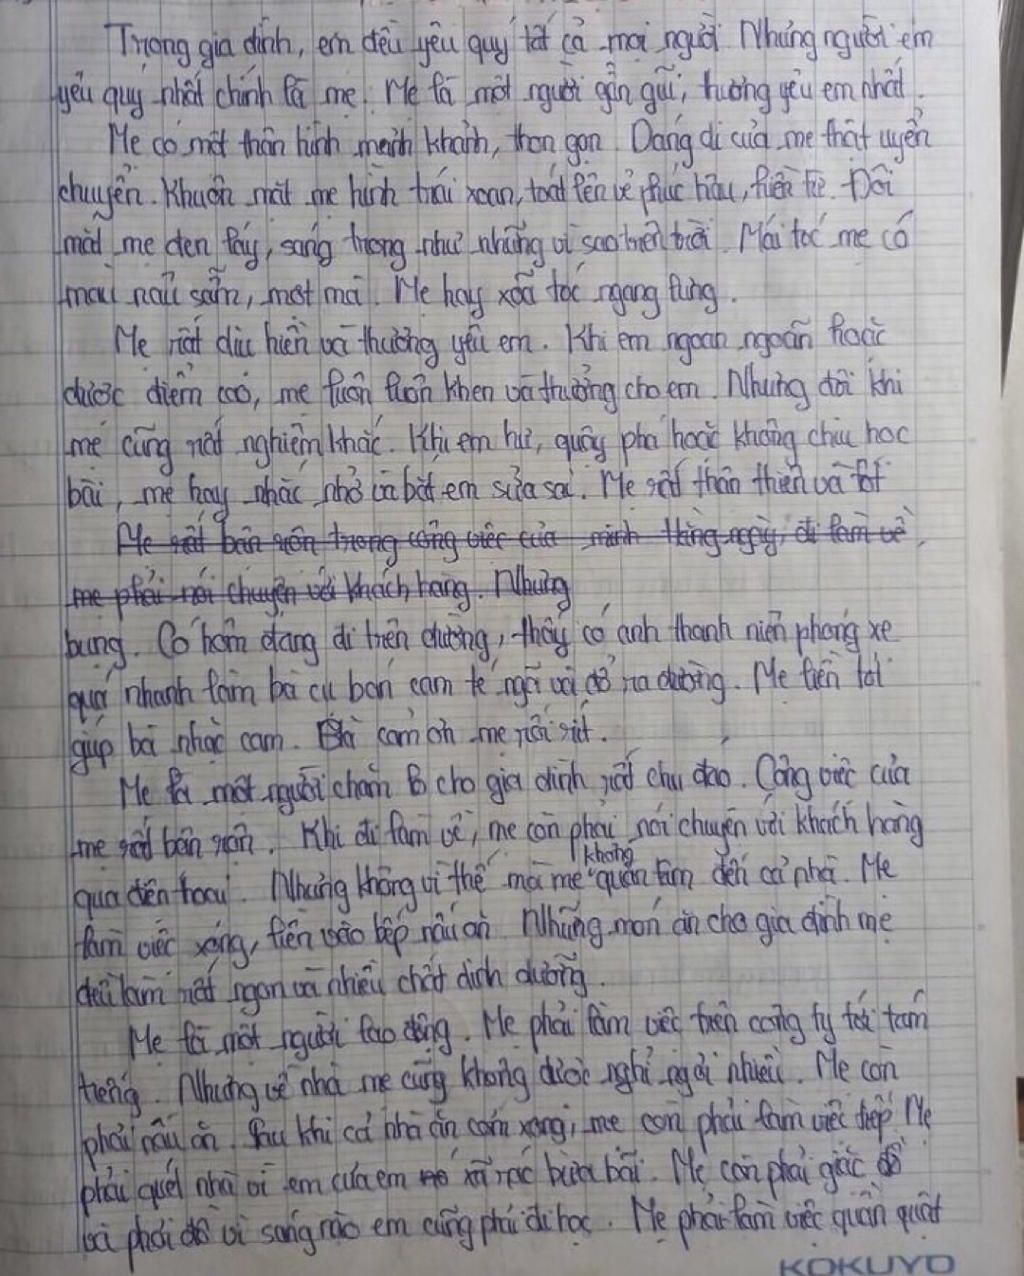 Trong gia đình, em đều yêu quý tất cả mọi người Nhưng người em
yêu quý nhất chính là mẹ. Mẹ là một người gần gũi, thương yêu em nhất.
Mẹ có một thân hình mảnh khảnh, thon gọn. Dáng đi của mẹ thật uyển
chuyển. Khuôn mặt mẹ hình trái xoan, toát lên vẻ phúc hậu, hiền từ. Đôi
mắt mẹ đen láy, sáng trong như những vì sao trên trời. Mái tóc mẹ có
màu nâu sẫm, mượt mà. Mẹ hay xoã tóc ngang lưng.
Mẹ rất dịu hiền và thương yêu em. Khi em ngoan ngoãn hoặc
được điểm cao, mẹ luôn luôn khen và thưởng cho em. Nhưng đôi khi
mẹ cũng rất nghiêm khắc. Khi em hư, quậy phá hoặc không chịu học
bài, mẹ hay nhắc nhở và bắt em sửa sai. Mẹ rất thân thiện và tốt
Mẹ rất bận rộn trong công việc của mình Hằng ngày, đi làm về,
mẹ phải nói chuyện với khách hàng. Nhưng
bụng. Có hôm đang đi trên đường, thấy có anh thanh niên phóng xe
quá nhanh làm bà cụ bán cam té ngã và đổ ra đường. Mẹ tiến tới
giúp bà nhặc cam. Bà cảm ơn mẹ rối rít.
Mẹ là một người chăm lo cho gia đình rất chu đáo. Công việc của
mẹ rất bận rộn. Khi đi làm về, mẹ còn phải nói chuyện với khách hàng
qua điện thoại. Nhưng không vì thế mà mẹ không quan tâm đến cả nhà. Mẹ
làm việc xong, liền vào bếp nấu ăn Những món ăn cho gia đình mẹ
đều làm rất ngon và nhiều chất dinh dưỡng.
Mẹ là một người lao động. Mẹ phải làm việc trên công ty tới tám
tiếng. Nhưng về nhà mẹ cũng không được nghỉ ngơi nhiều. Mẹ còn
phải nấu ăn. Sau khi cả nhà ăn cơm xong, mẹ còn phải làm việc tiếp Mẹ
phải quét nhà vì em của em xã rác bừa bãi. Mẹ còn phải giặc đồ
và phơi đồ vì sáng nào em cũng phải đi học. Mẹ phải làm việc quần quật
KOKUYO